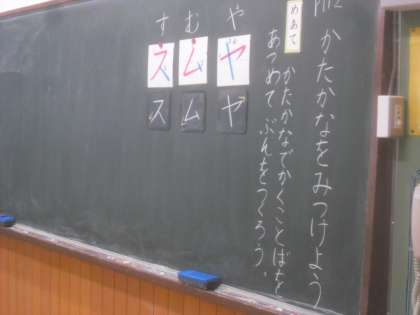 かたかなをみつけよう
めあて
かたかなでかくことばを
あつめてぶんをつくろう。
や
ヤ
ヤ
む
ム
ム
す
ス
ス